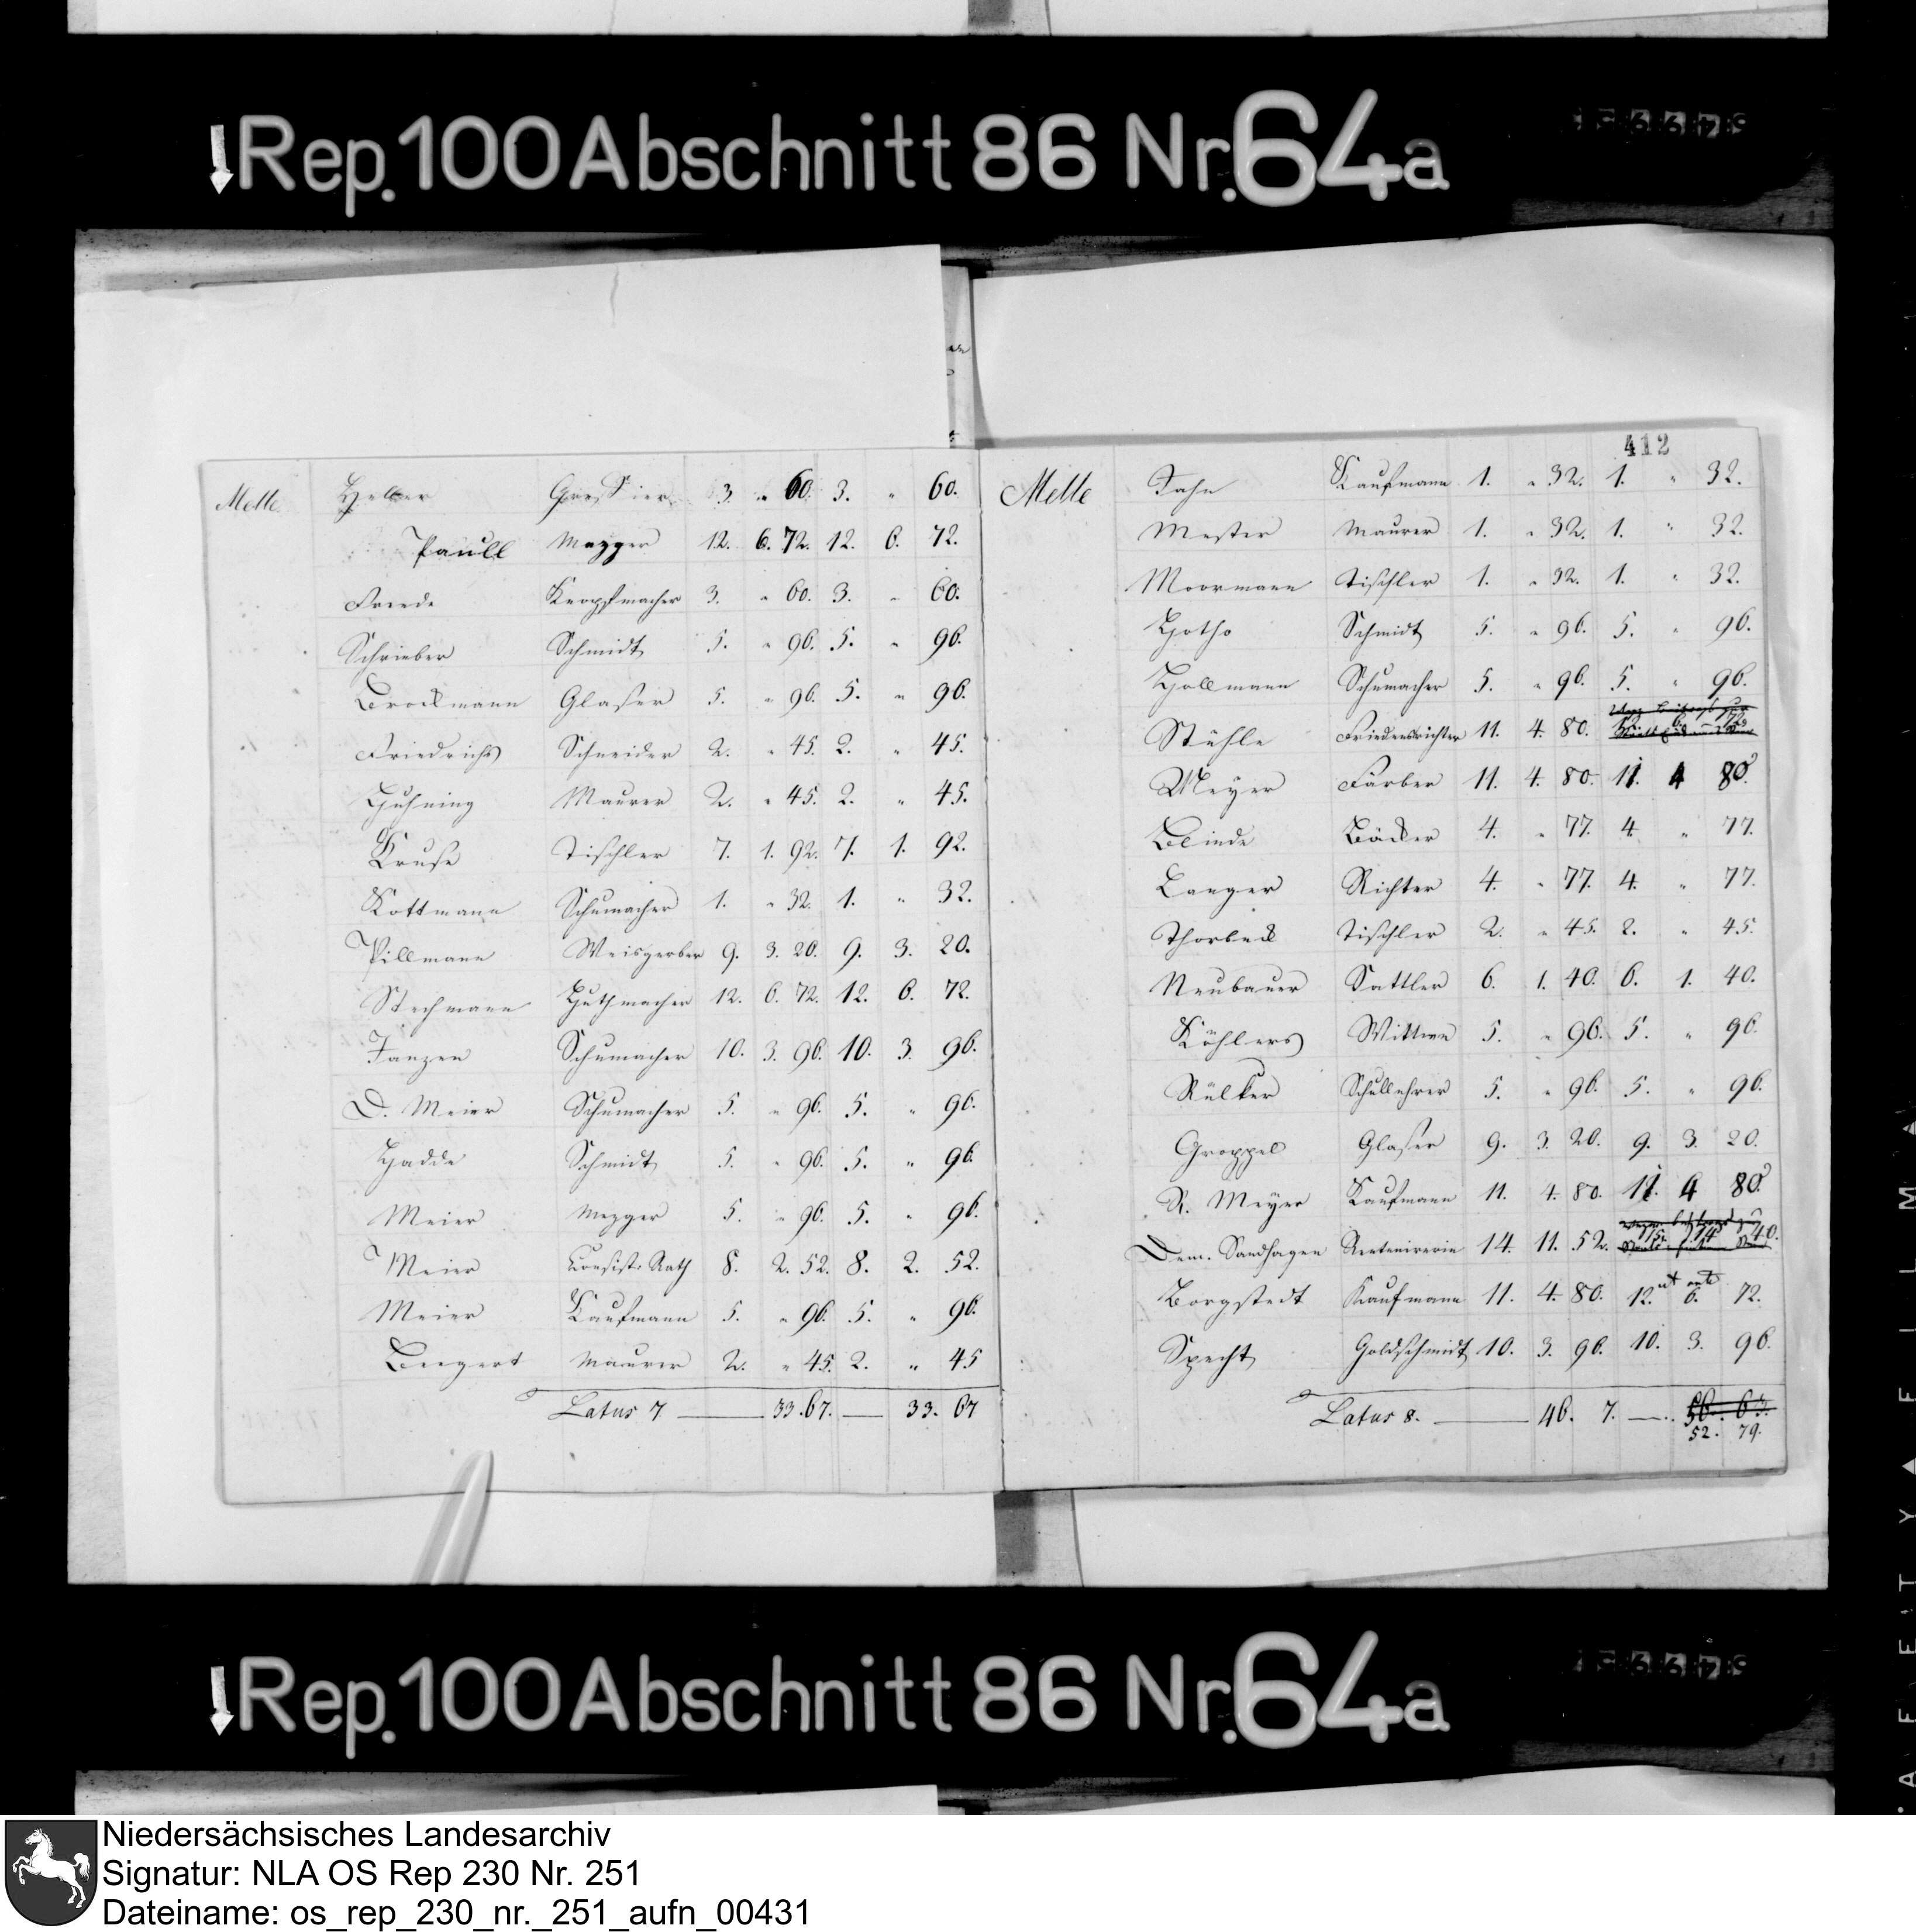 Rep. 100 Abschnitt 86 Nr. 64a
412
Melle. Helber Greffier 3. " 60. 3. " 60.
Paull Mezger 12. 6. 72. 12. 6. 72.
Freede Knopfmacher 3. " 60. 3. " 60.
Schrieber Schmidt 5. " 96. 5. " 96.
Brockmann Glaser 5. " 96. 5. " 96.
Friedrichs Schneider 2. " 45. 2. " 45.
Huhning Maurer 2. " 45. 2. " 45.
Kruse Tischler 7. 1. 92. 7. 1. 92.
Kottmann Schumacher 1. " 32. 1. " 32.
Pillmann Weisgerber 9. 3. 20. 9. 3. 20.
Stechmann Huthmacher 12. 6. 72. 12. 6. 72.
Janzen Schumacher 10. 3. 96. 10. 3. 96.
D. Meier Schumacher 5. " 96. 5. " 96.
Hadde Schmidt 5. " 96. 5. " 96.
Meier Mezger 5. " 96. 5. " 96.
Meier Consist. Rath 8. 2. 52. 8. 2. 52.
Meier Kaufmann 5. " 96. 5. " 96.
Maurer 2. " 45. 2. " 45
Latus 7 — 33. 67. — 33. 67
Melle Jahn Kaufmann 1. " 32. 1. " 32.
Mester Maurer 1. " 32. 1. " 32.
Moormann Tischler 1. " 32. 1. " 32.
Hotho Schmidt 5. " 96. 5. " 96.
Hollmann Schumacher 5. " 96. 5. " 96.
Stühle Friedensrichter 11. 4. 80. 12. 6. 72
Meyer Färber 11. 4. 80. 11. 4 80.
Blinde Bäcker 4. " 77. 4. " 77.
Langer Richter 4. " 77. 4. " 77.
Thorbeck Tischler 2. " 45. 2. " 45.
Neubauer Sattler 6. 1. 40. 6. 1. 40.
Köhlers Wittwe 5. " 96. 5. " 96.
Rülker Schullehrer 5. " 96. 5. " 96.
Groppel Glaser 9. 3. 20. 9. 3. 20.
R. Meyer Kaufmann 11. 4. 80. 11. 4 80.
Dem. Sandhagen Rentenirerin 14. 11. 52. 15. 14 40.
Borgstedt Kaufmann 11. 4. 80. 12. ut ante 6. 72.
Specht Goldschmidt 10. 3. 96. 10. 3. 96.
Latus 8. — 46. 7. — 56. 63.
52. 79.
Rep. 100 Abschnitt 86 Nr. 64a
Niedersächsisches Landesarchiv
Signatur: NLA OS Rep 230 Nr. 251
Dateiname: os_rep_230_nr._251_aufn_00431